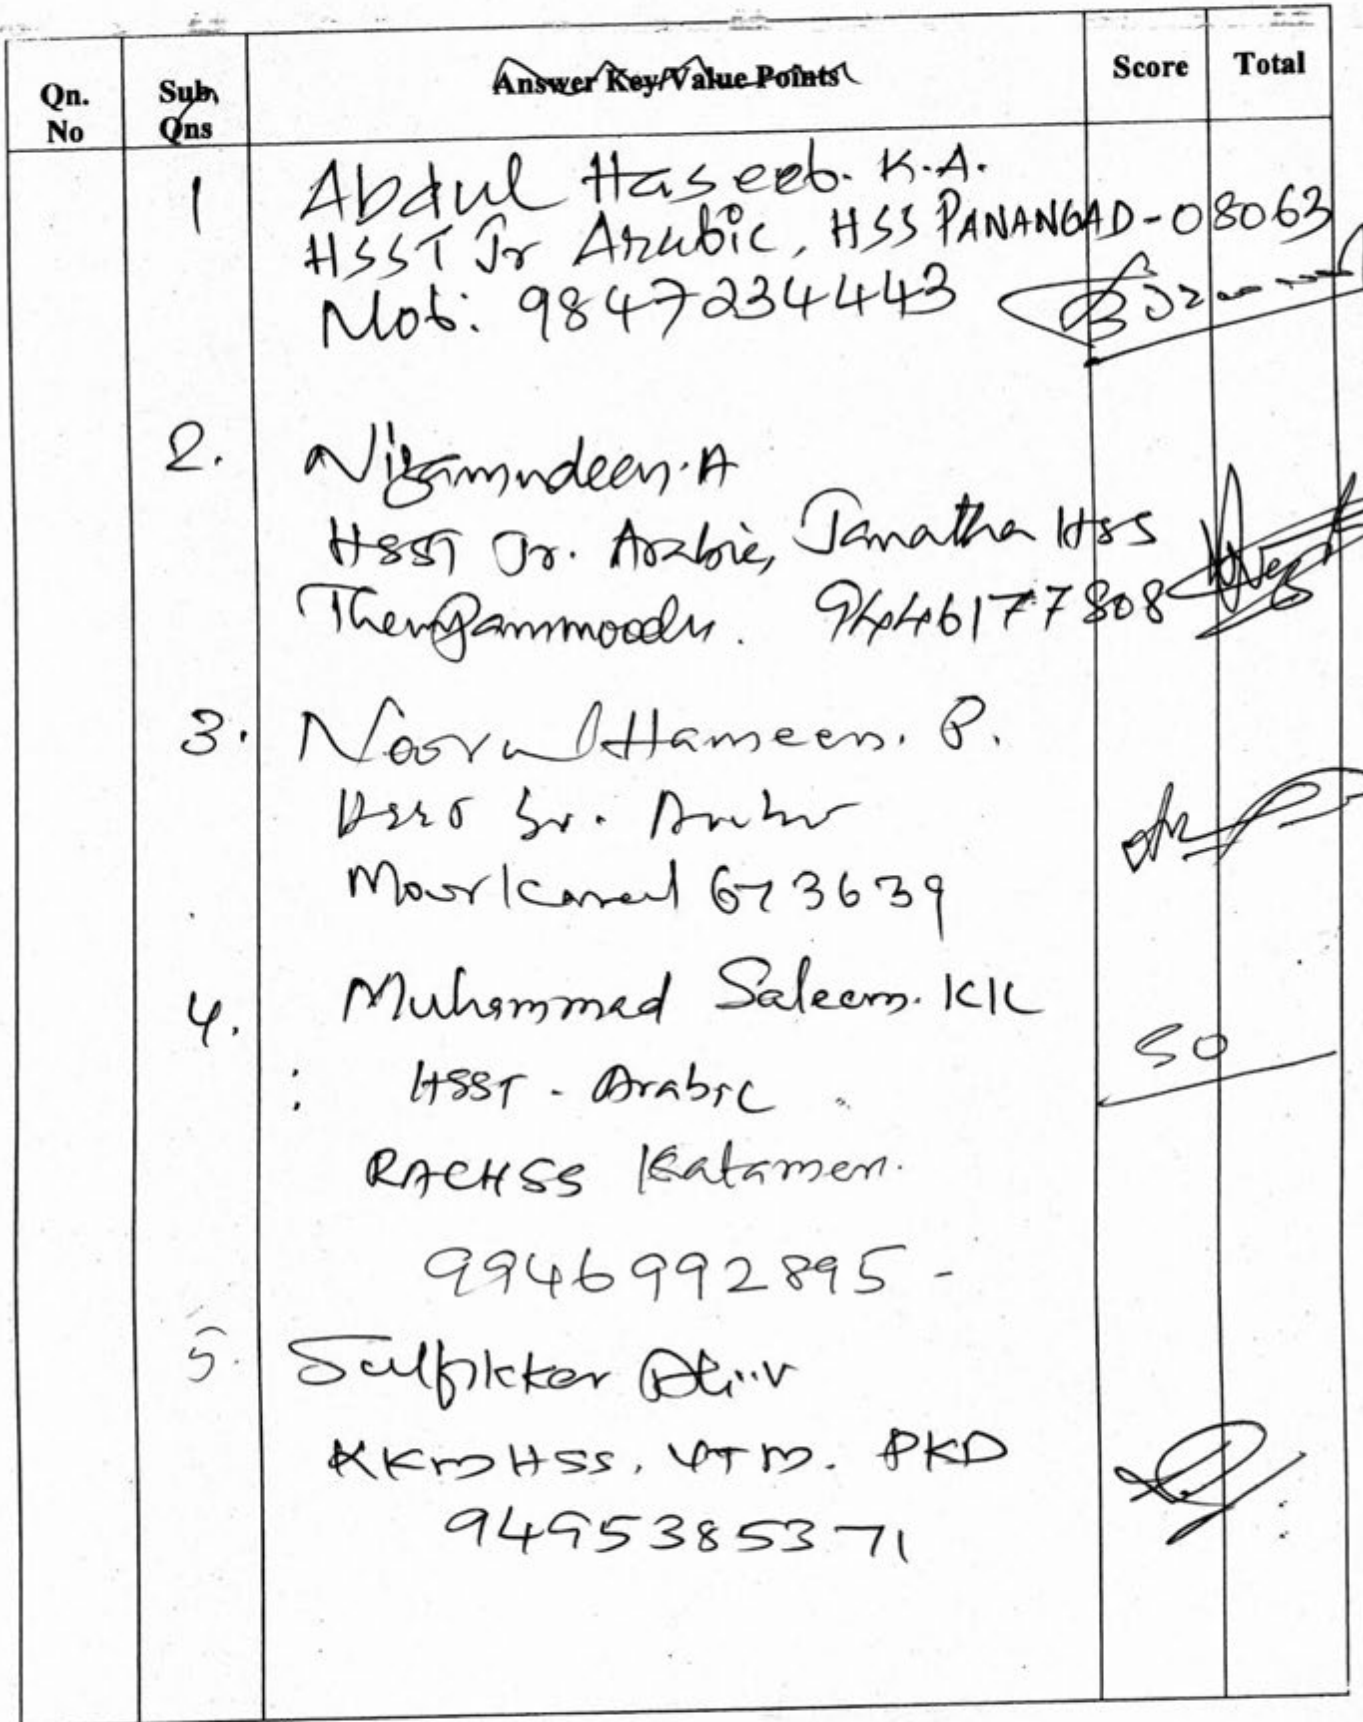 Qn. No
Sub. Qns
Answer Key/Value Points
Score
Total
1
Abdul Haseeb. K.A.
HSST Jr Arabic, HSS PANANGAD-08063
Mob: 9847234443
2.
Nizamudeen. A
HSST Jr. Arabic, Janatha HSS
Thempammoodu. 9446177808
3.
Noorul Hameen. P.
Moorkanad 673639
4.
Muhammad Saleem. KK
HSST - Arabic
RACHSS Katameri.
9946992895 -
5.
Sulfikker Ali.V
KKMHSS. VTM. PKD
9495385371